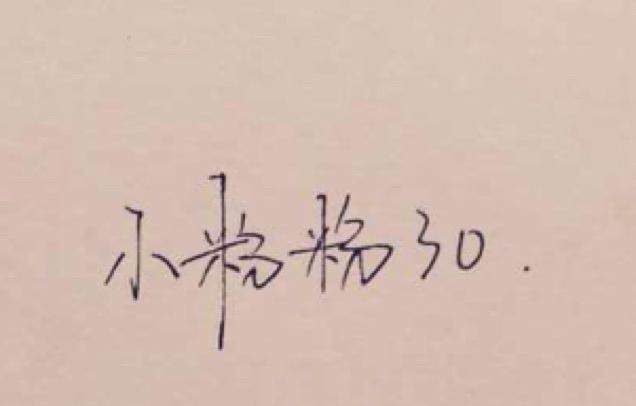 小粉粉30.